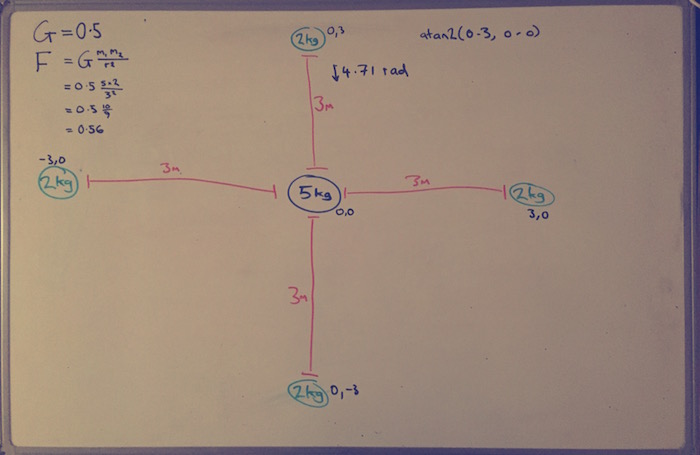 G = 0.5
F = G m₁m₂/r²
= 0.5 5×2/3²
= 0.5 10/9
= 0.56
2kg 0,3
atan2(0-3, 0-0)
↓4.71 rad
3m
-3,0
2kg
3m
5kg
0,0
3m
2kg
3,0
3m
2kg 0,-3